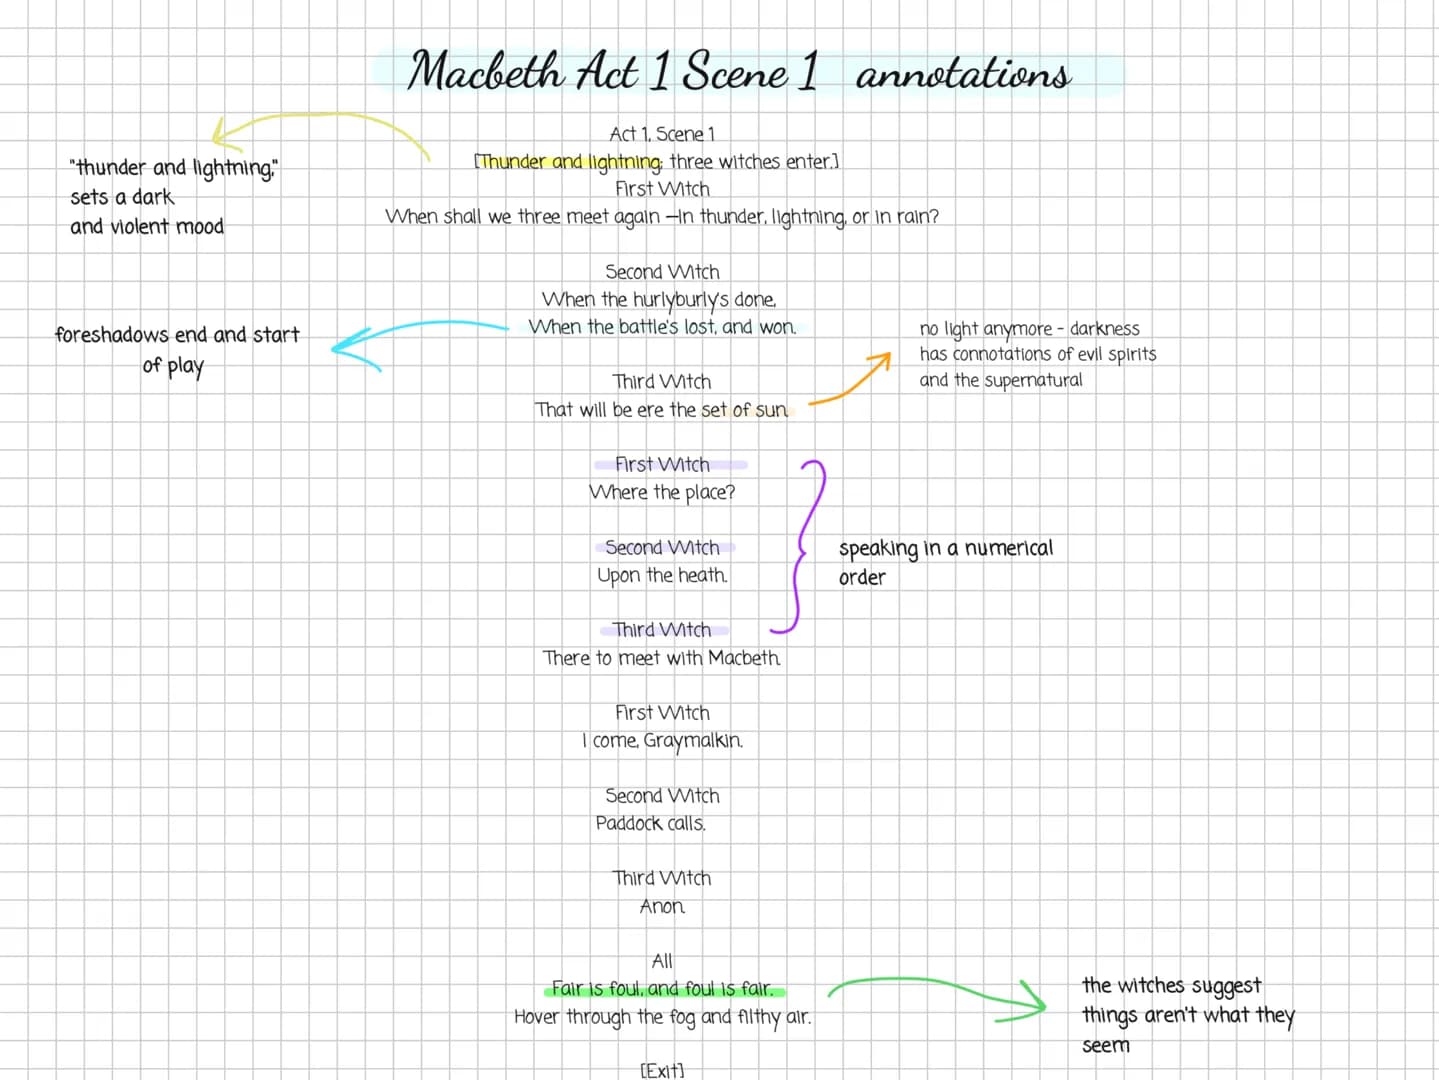 Macbeth Act 1 Scene 1 annotations
Act 1, Scene 1
[Thunder and lightning; three witches enter.]
First Witch
When shall we three meet again —in thunder, lightning, or in rain?
"thunder and lightning,"
sets a dark
and violent mood
Second Witch
When the hurlyburly's done,
When the battle's lost, and won.
foreshadows end and start
of play
no light anymore - darkness
has connotations of evil spirits
and the supernatural
Third Witch
That will be ere the set of sun.
First Witch
Where the place?
Second Witch
Upon the heath.
speaking in a numerical
order
Third Witch
There to meet with Macbeth.
First Witch
I come, Graymalkin.
Second Witch
Paddock calls.
Third Witch
Anon.
All
Fair is foul, and foul is fair.
Hover through the fog and filthy air.
the witches suggest
things aren't what they
seem
[Exit]